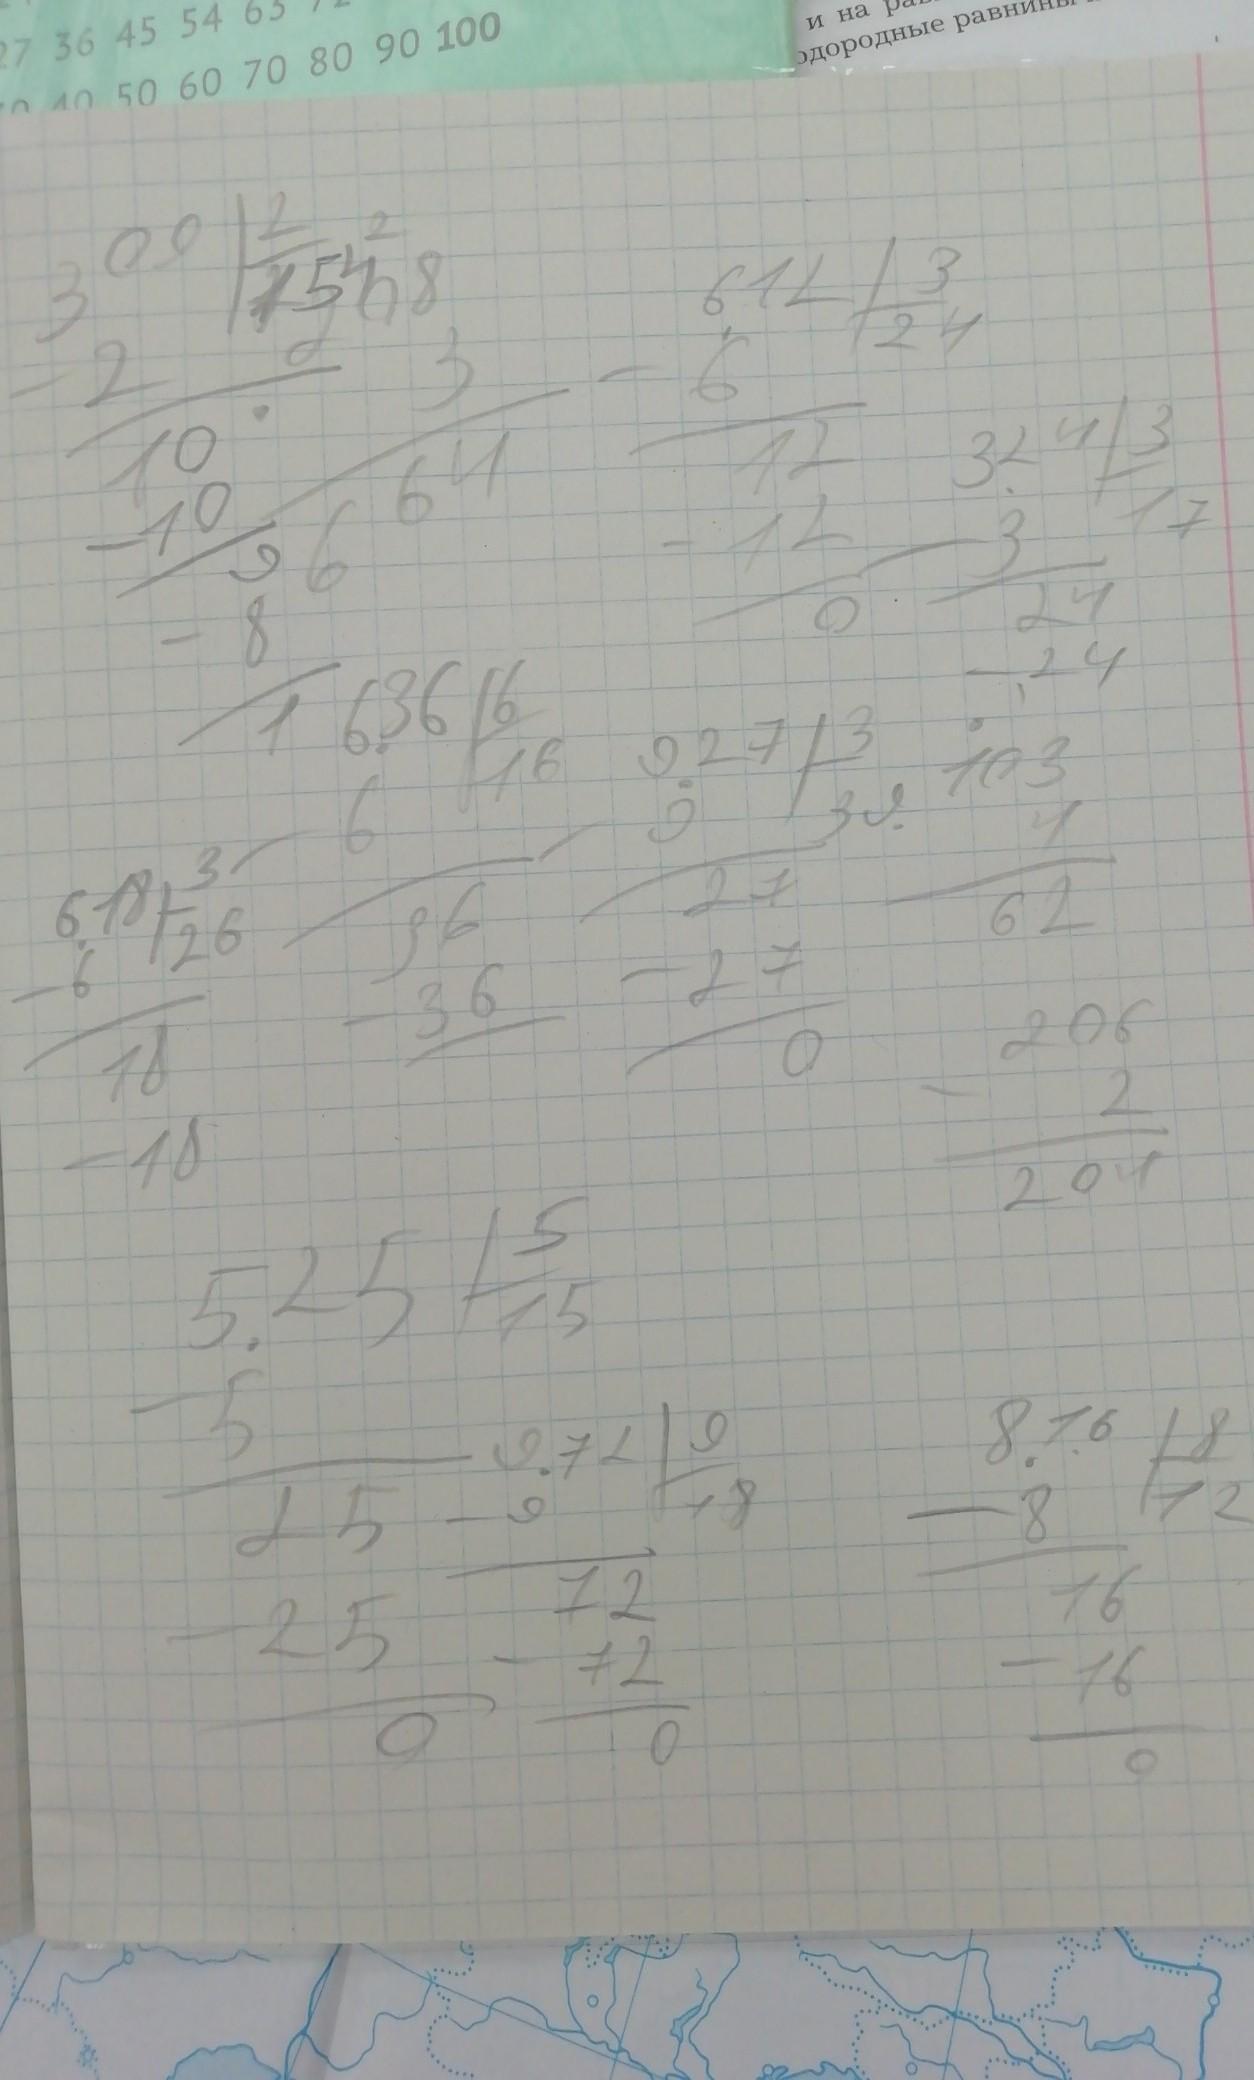 27 36 45 54 63 72
40 50 60 70 80 90 100
и на
одородные равнины
309 | 2
154
- 2
10
- 10
9
- 8
1
2
48
3
64
6
612 | 3
24
- 6
12
- 12
0
324 | 3
17
- 3
24
- 24
636 | 6
16
- 6
36
- 36
9.27 | 3
39.
- 9
27
- 27
0
103
4
62
6.18 | 3
26
- 6
18
- 18
206
- 2
204
5.25 | 5
15
- 5
25
- 25
0
9.72 | 9
18
- 9
72
- 72
0
8.1.6 | 8
12
- 8
16
- 16
0